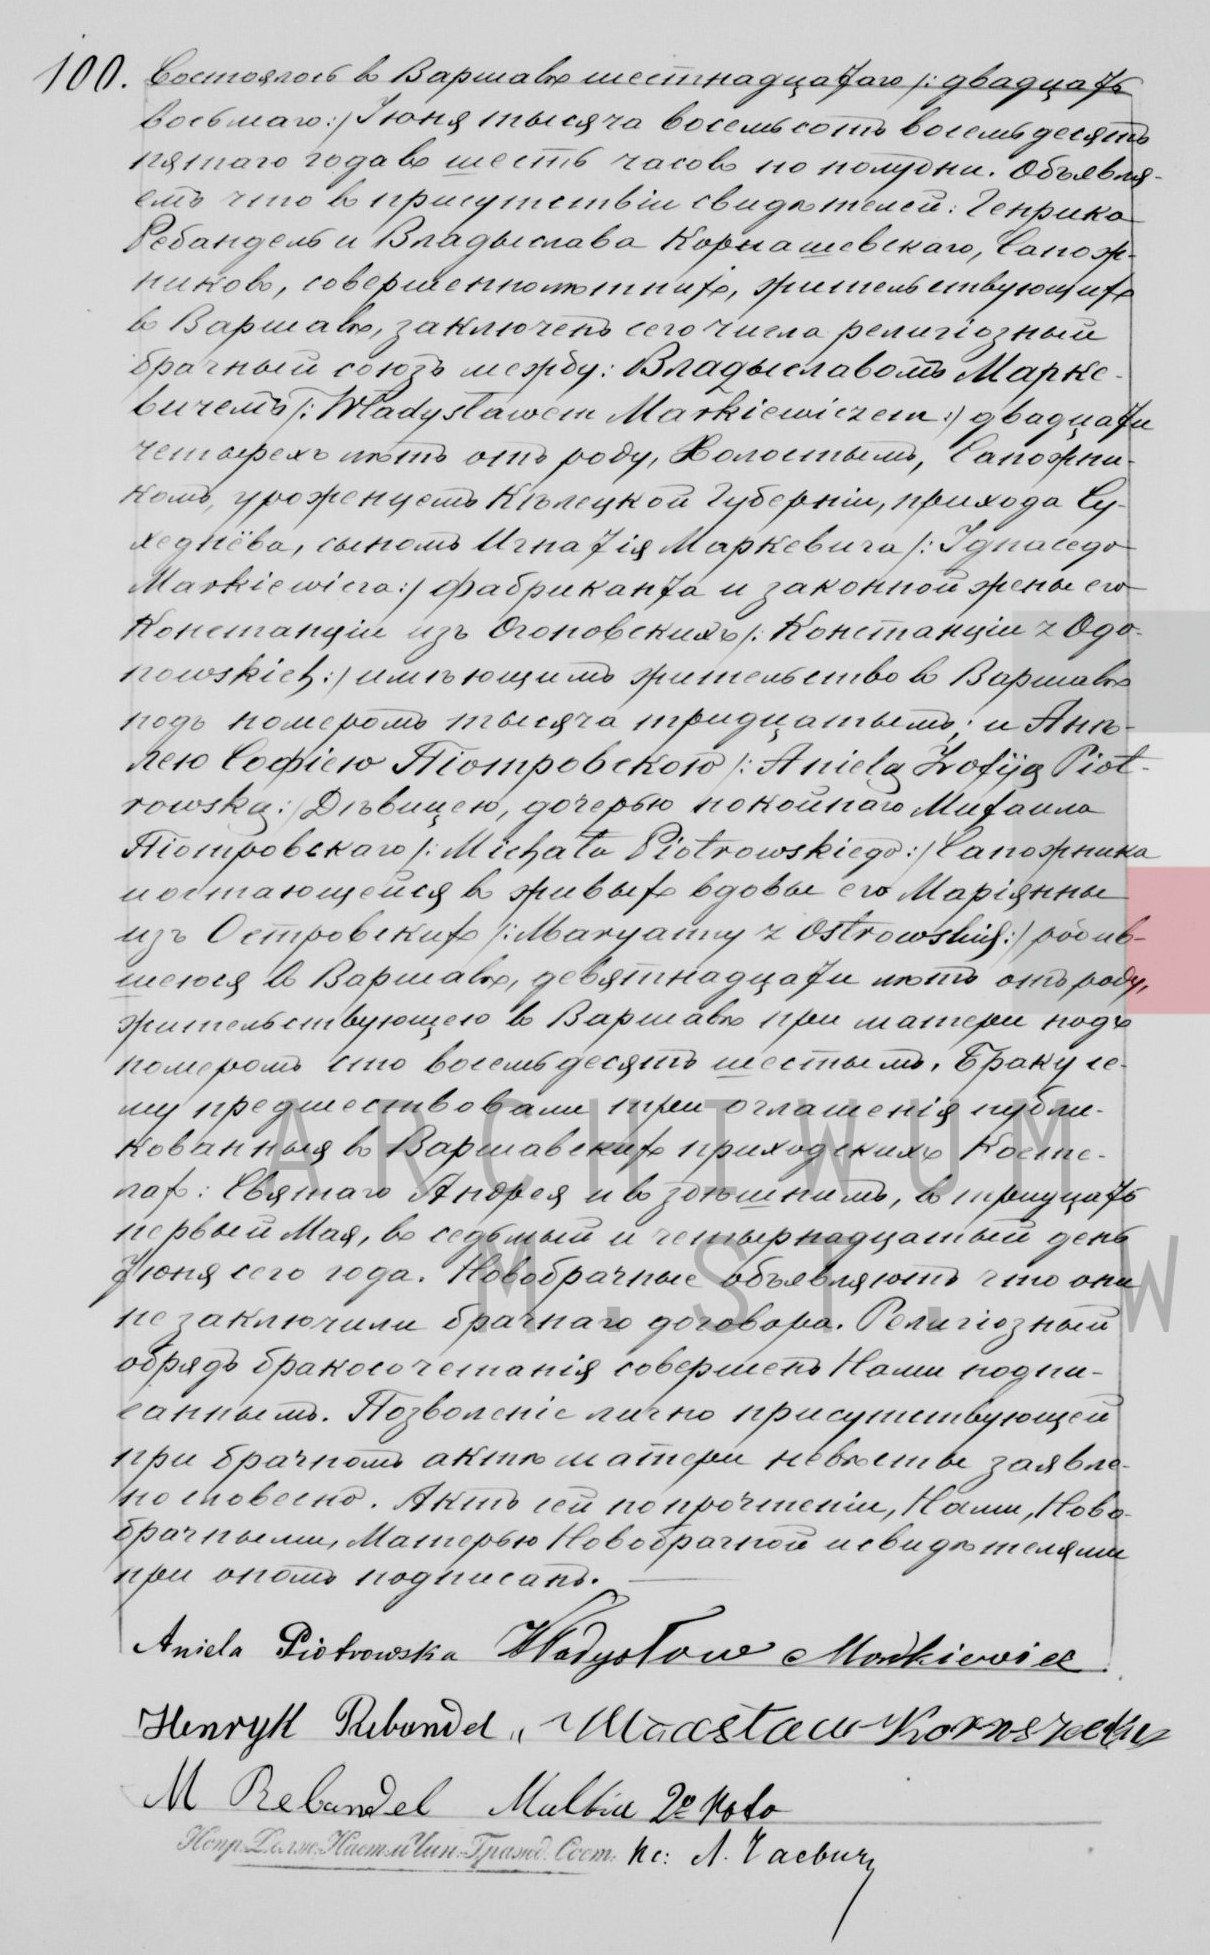 100. Состоялось въ Варшавѣ шестнадцатаго /: двадцать
восьмаго :/ Іюня тысяча восемьсотъ восемьдесятъ
пятаго года въ шесть часовъ по полудни. Объявля-
емъ что въ присутствіи свидѣтелей: Генрика
Ребандель и Владыслава Корнашевскаго, Сапож-
никовъ, совершеннолѣтнихъ, жительствующихъ
въ Варшавѣ, заключенъ сего числа религіозный
брачный союзъ между: Владыславомъ Марке-
вичемъ /: Władysławem Markiewiczem :/ двадцати
четырехъ лѣтъ отъ роду, Холостымъ, Сапожни-
комъ, уроженцемъ Кѣлецкой Губерніи, прихода Су-
хеднёва, сыномъ Игнатія Маркевича /: Ignacego
Markiewicza :/ фабриканта и законной жены его
Констанціи изъ Огоновскихъ /: Констанціи z Ogo-
nowskich :/ имѣющимъ жительство въ Варшавѣ
подъ номеромъ тысяча тридцатымъ; и Анѣ-
лею Софіею Піотровскою /: Anielą Zofiją Piot-
rowską :/ Дѣвицею, дочерью покойнаго Михаила
Піотровскаго /: Michała Piotrowskiego :/ Сапожника
и остающейся въ живыхъ вдовы его Маріянны
изъ Островскихъ /: Maryanny z Ostrowskich :/ родив-
шеюся въ Варшавѣ, девятнадцати лѣтъ отъ роду,
жительствующею въ Варшавѣ при матери подъ
номеромъ сто восемьдесятъ шестымъ. Браку се-
му предшествовали три оглашенія публи-
кованныя въ Варшавскихъ приходскихъ Косте-
лахъ: Святаго Андрея и въ здѣшнимъ, въ тридцать
первый Мая, въ седьмый и четырнадцатый день
Іюня сего года. Новобрачные объявляютъ что они
не заключили брачнаго договора. Религіозный
обрядъ бракосочетанія совершенъ Нами подпи-
саннымъ. Позволеніе лично присутствующей
при брачномъ актѣ матери невѣсты заявле-
но словесно. Актъ сей по прочтеніи, Нами, Ново-
брачными, Матерью Новобрачной и свидѣтелями
при ономъ подписанъ.
Aniela Piotrowska Władysław Markiewicz
Henryk Rebandel
M Rebandel 2º Voto
Испр. Долж. Наст. и Чин. Гражд. Сост. Кс:
ARCHIWUM
M. ST. W